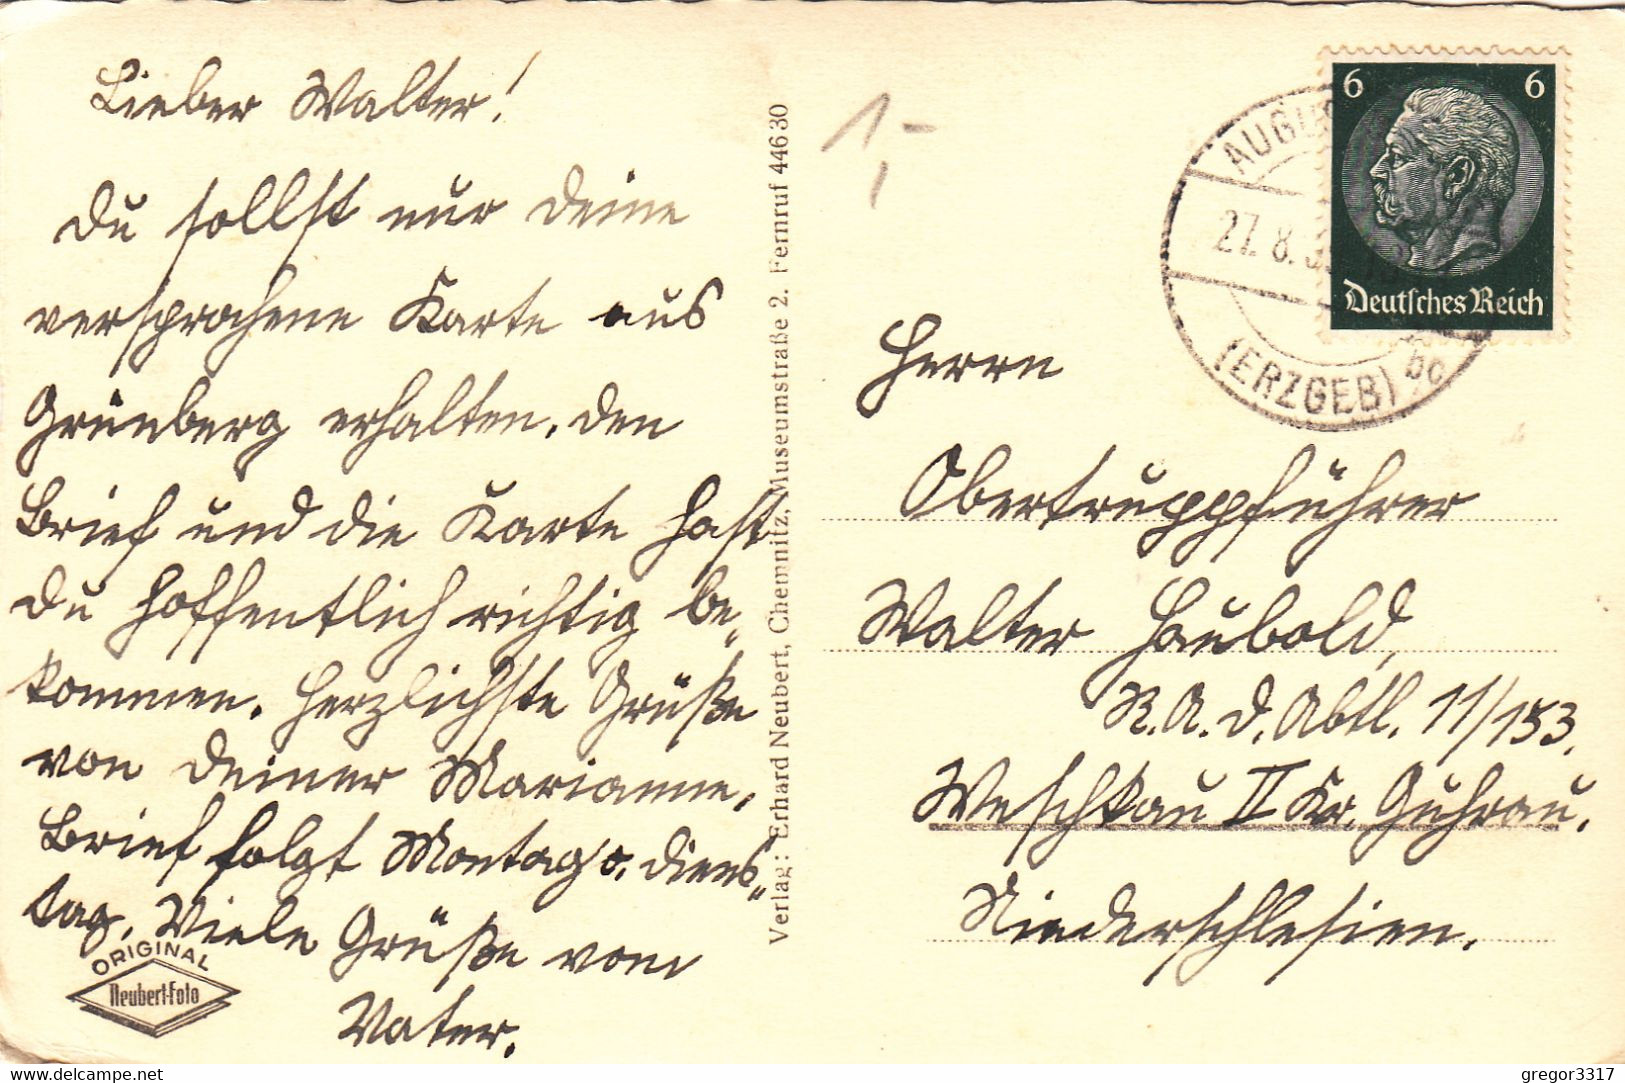 Lieber Walter!
Du sollst nur Deine
versprochene Karte aus
Grünberg erhalten. Den
Brief und die Karte hast
Du hoffentlich richtig be-
kommen. Herzlichste Grüße
von Deiner Marianne.
Brief folgt Montag o. Diens-
tag. Viele Grüße vom
Vater.
ORIGINAL
Neubert-Foto
Verlag: Erhard Neubert, Chemnitz, Museumstraße 2. Fernruf 44630
1,-
6 6
Deutsches Reich
27.8.3
(ERZGEB) bc
Herrn
Obertruppführer
Walter Haubold,
R.A.D. Abtl. 11/153.
Weschkau II Kr. Guhrau.
Niederschlesien.
www.delcampe.net
gregor3317